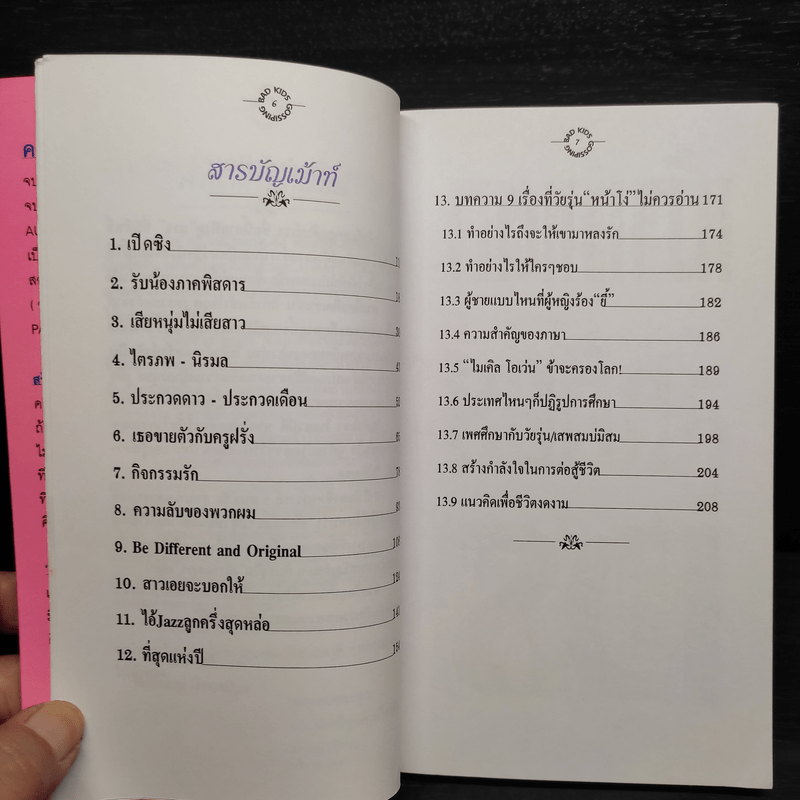 BAD KIDS GOSSIPING
6
สารบัญเม้าท์
1. เปิดซิง
2. รับน้องภาคพิสดาร
3. เสียหนุ่มไม่เสียสาว
4. ไตรภพ - นิรมล
5. ประกวดดาว - ประกวดเดือน
6. เธอขายตัวกับครูฝรั่ง
7. กิจกรรมรัก
8. ความลับของพวกผม
9. Be Different and Original
10. สาวเอยจะบอกให้
11. ไอ้Jazzลูกครึ่งสุดหล่อ
12. ที่สุดแห่งปี
BAD KIDS GOSSIPING
7
13. บทความ 9 เรื่องที่วัยรุ่น“หน้าโง่”ไม่ควรอ่าน 171
13.1 ทำอย่างไรถึงจะให้เขามาหลงรัก 174
13.2 ทำอย่างไรให้ใครๆชอบ 178
13.3 ผู้ชายแบบไหนที่ผู้หญิงร้อง“ยี้” 182
13.4 ความสำคัญของภาษา 186
13.5 “ไมเคิล โอเว่น” ข้าจะครองโลก! 189
13.6 ประเทศไหนๆก็ปฏิรูปการศึกษา 194
13.7 เพศศึกษากับวัยรุ่น/เสพสมบ่มิสม 198
13.8 สร้างกำลังใจในการต่อสู้ชีวิต 204
13.9 แนวคิดเพื่อชีวิตงดงาม 208